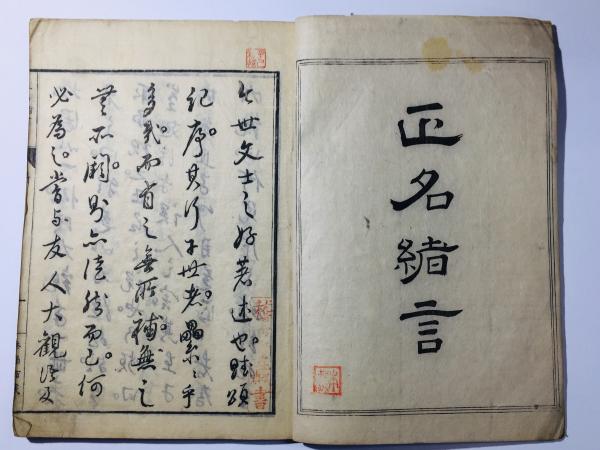 正名緒言
今世文士之好著述也。賦頌
紀序。其行于世者。纍〻乎
多哉。而有之無所補。無之
無所闕。則亦徒然而已。何
必為之。嘗与友人大觀語及